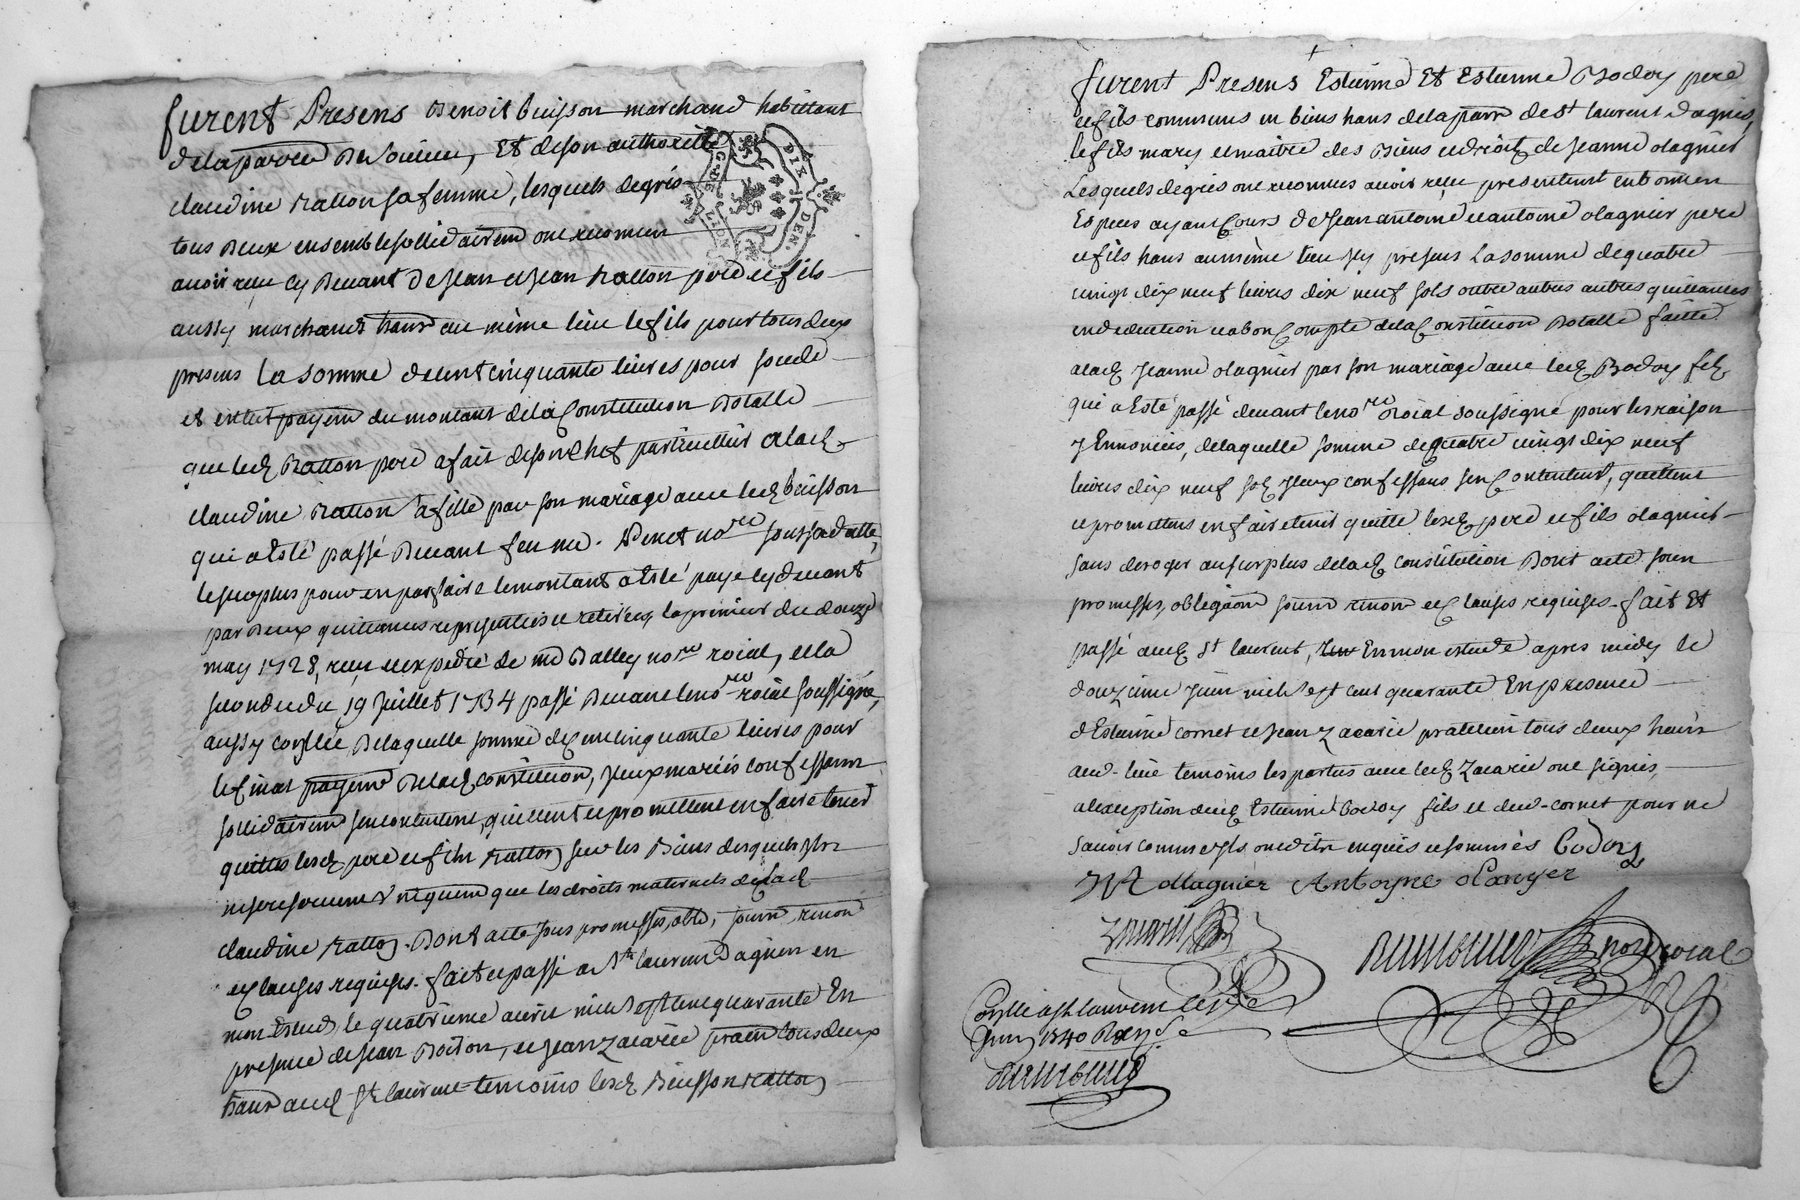 furent Presens Benoit buisson marchand habittant
de la parroe de Soucieu, Et de son authorité
claudine ratton sa femme, lesquels de gré
tous deux ensemble sollidairemt ont reconnu
avoir reçu cy devant de Jean et Jean ratton pere et fils
aussy marchands hants au même lieu le fils pour tous deux
presens la somme de cent cinquante livres pour solde
et entier payemt du montant de la Constitution dotalle
que led. ratton pere a fait de son chef particullier a lad.
claudine ratton sa fille par son mariage avec led. buisson
qui a esté passé devant feu me. Penet nore
le surplus pour en parfaire le montant a esté payé cy devant
par deux quittances representées et retirées, la premiere du douze
may 1728, reçu et expedié de me Balley nore roial, et la
seconde du 19 Juillet 1734 passé devant le nore roial soussigné,
aussy conllée, de laquelle somme de cent cinquante livres pour
le final payemt de lad. constitution, yceux mariés confessant
sollidairemt sen contentent, quittent et promettent en faire tenir
quittes lesd. pere et fils ratton sur les biens desquels
que les droits maternels de lad.
claudine ratton. Dont acte sous promesses, oblg, soum renon
et clauses requises. fait et passé a St laurent d'agnieu en
mon etude, le quatrieme avril mil sept cent quarante En
presence de Jean Boiron, et Jean zacarie pratn tous deux
hants aud. St laurent temoins lesd. Buisson ratton
furent Presens Estienne Et Estienne Bodoy pere
et fils communs en biens hans de la parre de St laurent d'agnis,
le fils mary et maitre des biens et droits de Jeanne olagnier
Lesquels de gré ont reconnus avoir reçu presentemt en bonnes
Especes ayant Cours de Jean antoine et antoine olagnier pere
et fils hans au même lieu icy presens La somme de quatre
vingt dix neuf livres dix neuf sols outre autres quittances
en deduction et a bon Compte de la Constitution dotalle faitte
a lad. Jeanne olagnier par son mariage avec led. Bodoy fils
qui a Esté passé devant le nore roial soussigné pour les raison
y Ennoncées, de laquelle somme de quatre vingt dix neuf
livres dix neuf sols yceux confessans sen Contentent, quittent
et promettent en faire tenir quitte lesd. pere et fils olagnier
sans deroger au surplus de lad. constitution Dont acte sous
promesses, obligaõn soum renon et Clauses requises. fait Et
passé aud. St laurent, En mon etude apres midy le
douzieme Juin mil sept cent quarante En presence
d'Estienne cornet et Jean zacarie praticien tous deux hans
aud. lieu temoins les parties avec led. Zacarie ont signés,
a lexception dud. Estienne bodoy fils et dud. cornet pour ne
savoir comme yls ont dit enquis et sommés Bodoy
JA ollagnier Antoyne olanyer
Zacarie
nore roial
Conllé a St laurent le
Juin 1740